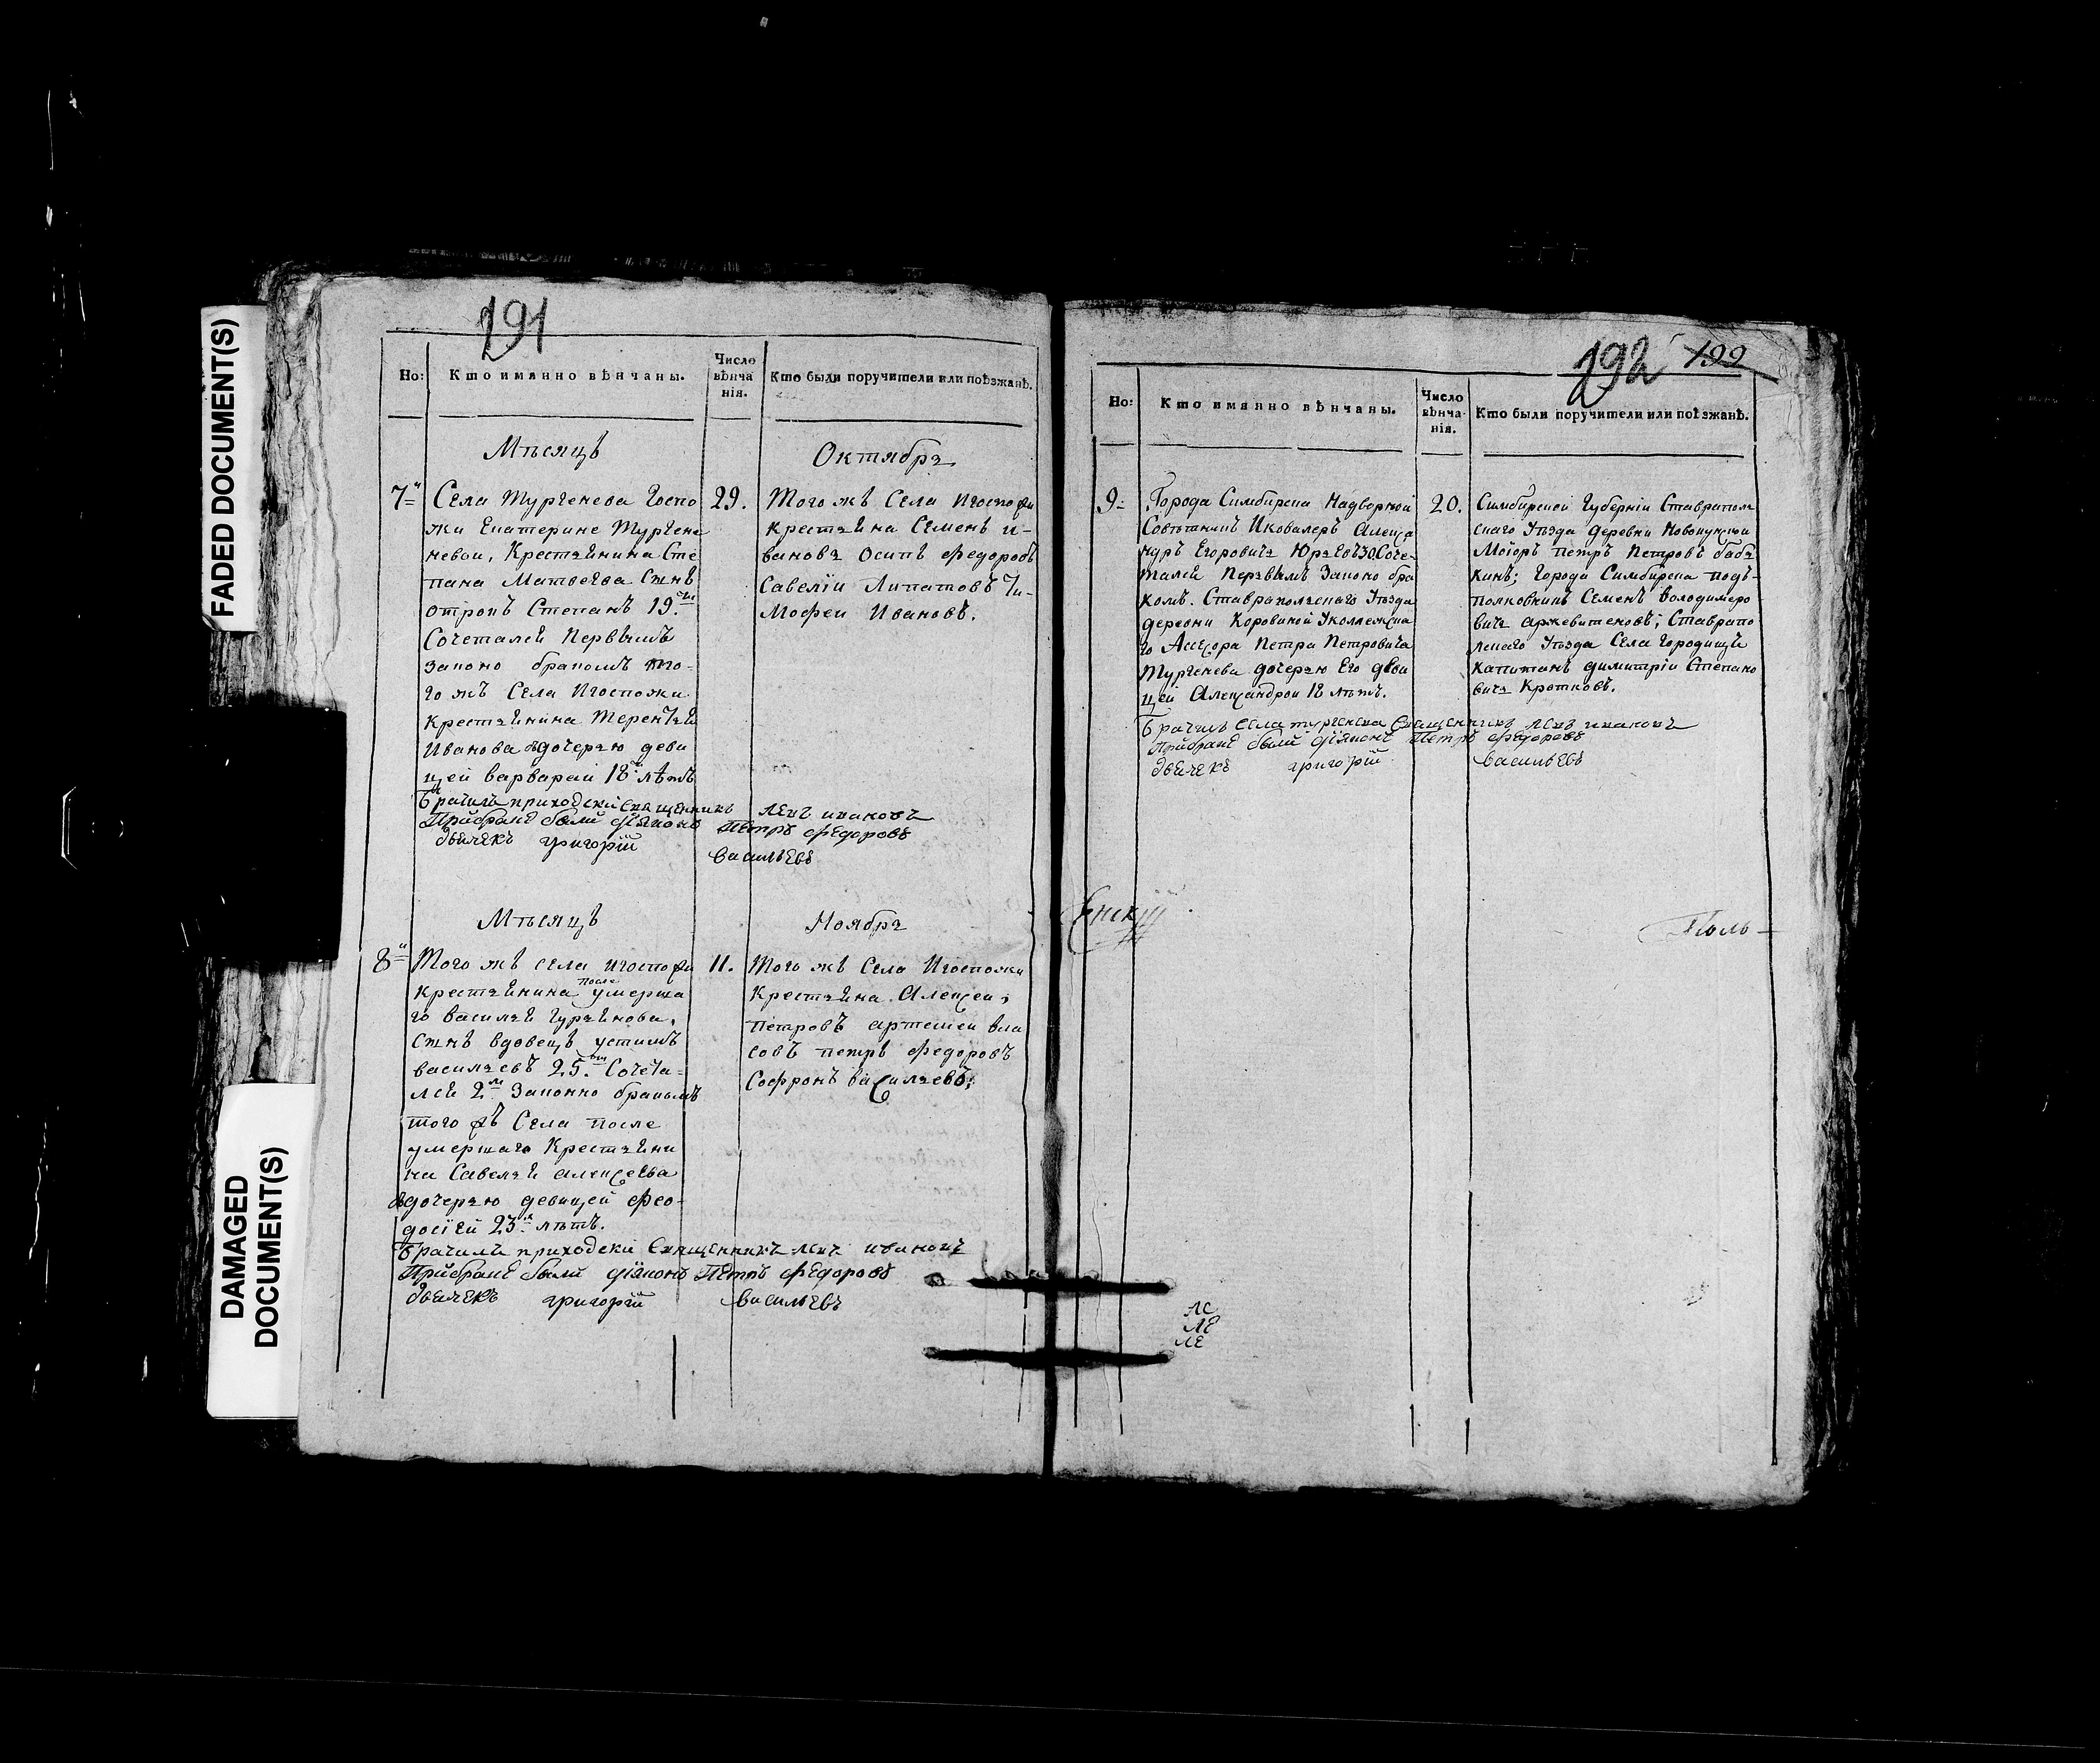 FADED DOCUMENT(S)
DAMAGED
DOCUMENT(S)
291
Но:
Кто имянно вѣнчаны.
Число
вѣнча
нія.
Кто были поручители или поѣзжанѣ.
Мѣсяцъ
Октября
7й
Села Тургенева Госпо
жи Екатерине Тургене
невои, Крестьянина Сте
пана Матвеева Сынъ
отрокъ Степанъ 19.
Сочетался Первымъ
законо бракомъ то-
го жъ Села Игоспожи
крестьянина Терентья
Иванова дочерью деви
цей варварай 18 лѣтъ
29.
Того жъ Села Игоспожи
крестьяна Семенъ и-
вановъ Осипъ федоровъ
Савелiи Липатовъ Ти-
мофеи Ивановъ.
Брачилъ приходски Священникъ Левъ ивановъ
Прибраке были дiяконъ Петръ федоровъ
дьячекъ григорiй васильевъ
Мѣсяцъ
Ноября
8й
Того жъ села игоспожи
крестьянина после умерша
го василья гурьянова,
сынъ вдовецъ устимъ
васильевъ 25. Сочета-
лся 2мъ Законно бракомъ
того жъ Села после
умершаго Крестьяни
на Савелья алексеева
дочерью девицей фео-
досiей 23 лѣтъ.
11.
Того жъ Села Игоспожи
Крестьяна Алексеи
петровъ артемеи вла
совъ петръ федоровъ
Софронъ васильевъ;
Брачилъ приходски Священникъ левъ ивановъ
Прибраке были дiяконъ Петръ федоровъ
дьячекъ григорiй васильевъ
292 199
Но:
Кто имянно вѣнчаны.
Число
вѣнча-
нія.
Кто были поручители или поѣзжанѣ.
9.
Города Симбирска Надворной
Совѣтникъ Иковалеръ Алекса
ндръ Егоровичь Юрьевъ 30. Соче-
тался Первымъ Законо бра
комъ. Ставрапольскаго Уѣзда
деревни Коровиной Уколлежска
го Асесора Петра Петровича
Тургенева дочерью Его деви
цей Александрой 18 лѣтъ.
20.
Симбирской Губернiи Ставраполь
скаго Уѣзда деревни
Маiоръ Петръ Петровъ баба
кинъ; Города Симбирска подъ-
полковникъ Семенъ володимеро
вичь аржевитеновъ; Ставрапо
лскаго Уѣзда Села Городищъ
Капитанъ димитрiи Степано
вичь Кротковъ.
Брачилъ села тургенева Священникъ левъ ивановъ
Прибраке были дiяконъ Петръ федоровъ
дьячекъ григорiй васильевъ
Поль-
ЛС
ЛЕ
ЛЕ